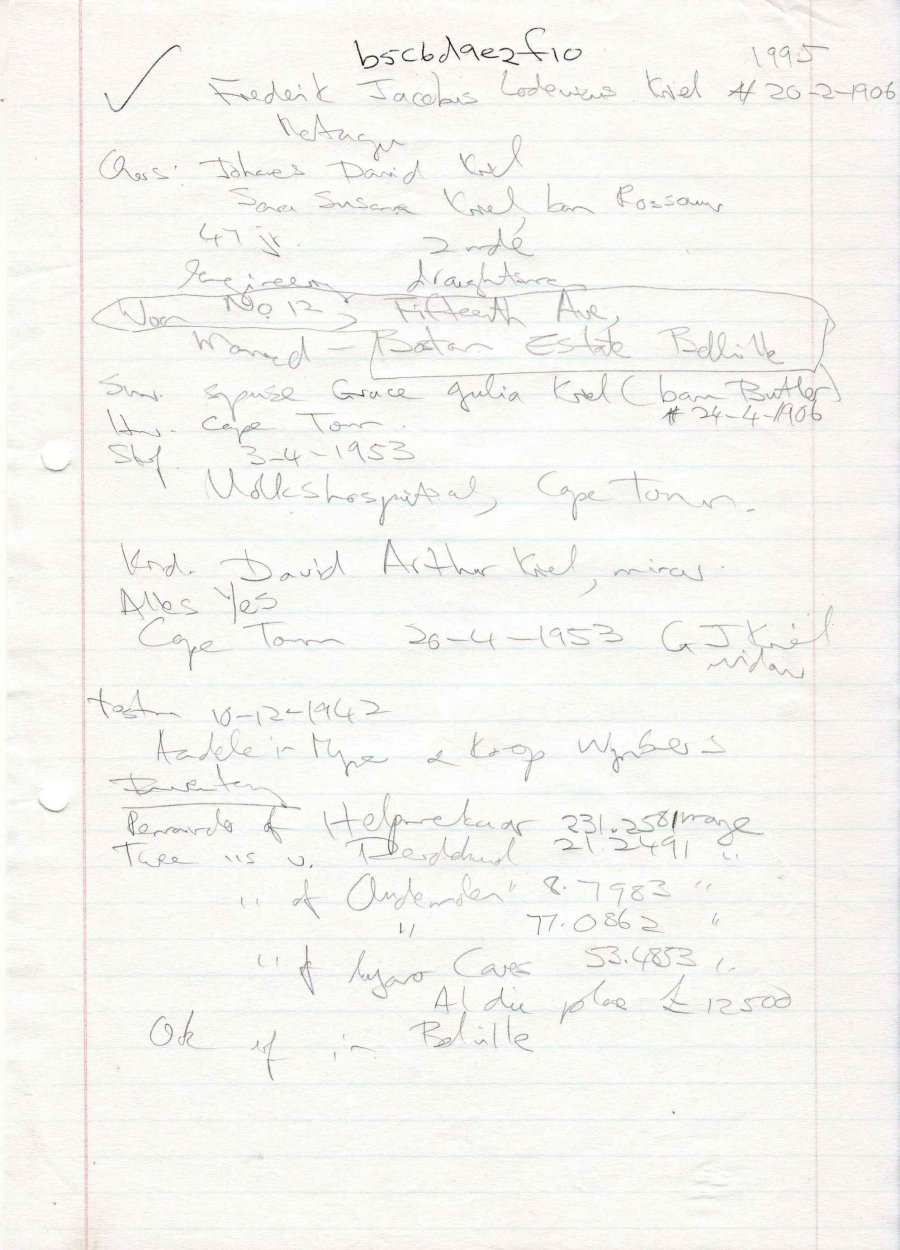 b5c6d9e2f10 1995
Frederik Jacobus Lodewus Kriel # 20-2-1906
Montagu
Ouers: Johanes David Kriel
Sara Susana Kriel, ban Rossouw
47 jr. 2 ndé
Engineering draughtsman
Woon No 12, Fifteenth Ave,
Married - Boston Estate Bellville
Surv. spouse Grace Julia Kriel (ban Butler)
# 24-4-1906
Huw. Cape Town.
Sterf. 3-4-1953
Volkshospitaal, Cape Town.
Knd. David Arthur Kriel, minor.
Alles Yes
Cape Town 20-4-1953 G J Kriel
widow
Testm 10-12-1942
& Koop Wynberg
Inventory
Remainder of Helpmekaar 231.2581 morge
Twee "s v. 21.2491 "
" of 8.7983 "
" 77.0862 "
" of Caves 53.4853 "
Al die plase £12500
Ook erf in Belville